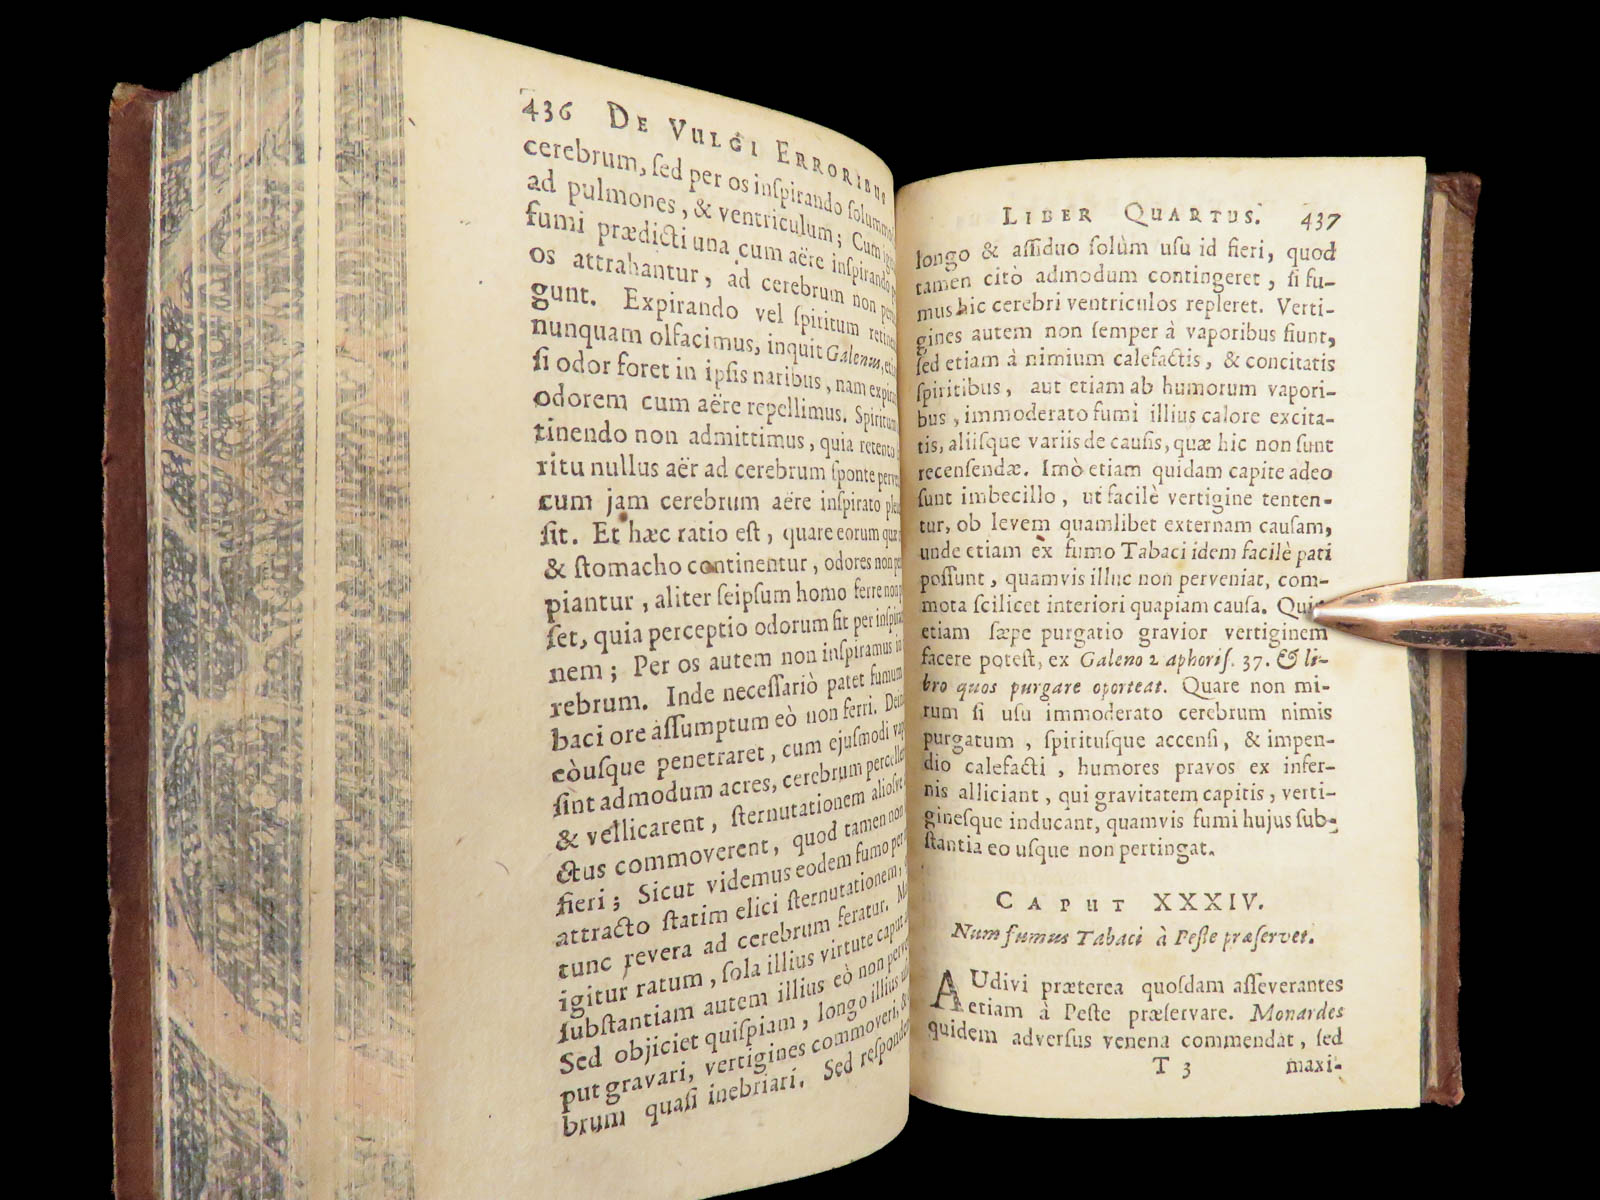 436 DE VULGI ERRORIBUS
cerebrum, ſed per os inſpirando
ad pulmones, & ventriculum; Cum
fumi prædicti una cum aëre inſpirando
os attrahantur, ad cerebrum non
gunt. Expirando vel ſpiritum
nunquam olfacimus, inquit Galenus,
ſi odor foret in ipſis naribus, nam
odorem cum aëre repellimus. Spiritum
tinendo non admittimus, quia retento
ritu nullus aër ad cerebrum ſponte
cum jam cerebrum aëre inſpirato
ſit. Et hæc ratio eſt, quare eorum
& ſtomacho continentur, odores non
piantur, aliter ſeipſum homo ferre non
ſet, quia perceptio odorum fit per
nem; Per os autem non inſpiramus in
rebrum. Inde neceſſariò patet fumum
baci ore aſſumptum eò non ferri.
eòuſque penetraret, cum ejuſmodi
ſint admodum acres, cerebrum
& vellicarent, ſternutationem
ctus commoverent, quod tamen non
fieri; Sicut videmus eodem fumo per
attracto ſtatim elici ſternutationem,
tunc revera ad cerebrum feratur.
igitur ratum, ſola illius virtute caput
ſubſtantiam autem illius eò non
Sed objiciet quiſpiam, longo illius
put gravari, vertigines commoveri, &
brum quaſi inebriari. Sed
LIBER QUARTUS. 437
longo & aſſiduo ſolùm uſu id fieri, quod
tamen citò admodum contingeret, ſi fu-
mus hic cerebri ventriculos repleret. Verti-
gines autem non ſemper à vaporibus fiunt,
ſed etiam à nimium calefactis, & concitatis
ſpiritibus, aut etiam ab humorum vapori-
bus, immoderato fumi illius calore excita-
tis, aliiſque variis de cauſis, quæ hic non ſunt
recenſendæ. Imò etiam quidam capite adeo
ſunt imbecillo, ut facilè vertigine tenten-
tur, ob levem quamlibet externam cauſam,
unde etiam ex fumo Tabaci idem facilè pati
poſſunt, quamvis illuc non perveniat, com-
mota ſcilicet interiori quapiam cauſa.
etiam ſæpe purgatio gravior vertiginem
facere poteſt, ex Galeno 2 aphoriſ. 37. & li-
bro quos purgare oporteat. Quare non mi-
rum ſi uſu immoderato cerebrum nimis
purgatum, ſpirituſque accenſi, & impen-
dio calefacti, humores pravos ex infer-
nis alliciant, qui gravitatem capitis, verti-
gineſque inducant, quamvis fumi hujus ſub-
ſtantia eo uſque non pertingat.
CAPUT XXXIV.
Num fumus Tabaci à Peſte præſervet.
AUdivi præterea quoſdam aſſeverantes
etiam à Peſte præſervare. Monardes
quidem adverſus venena commendat, ſed
T 3 maxi-